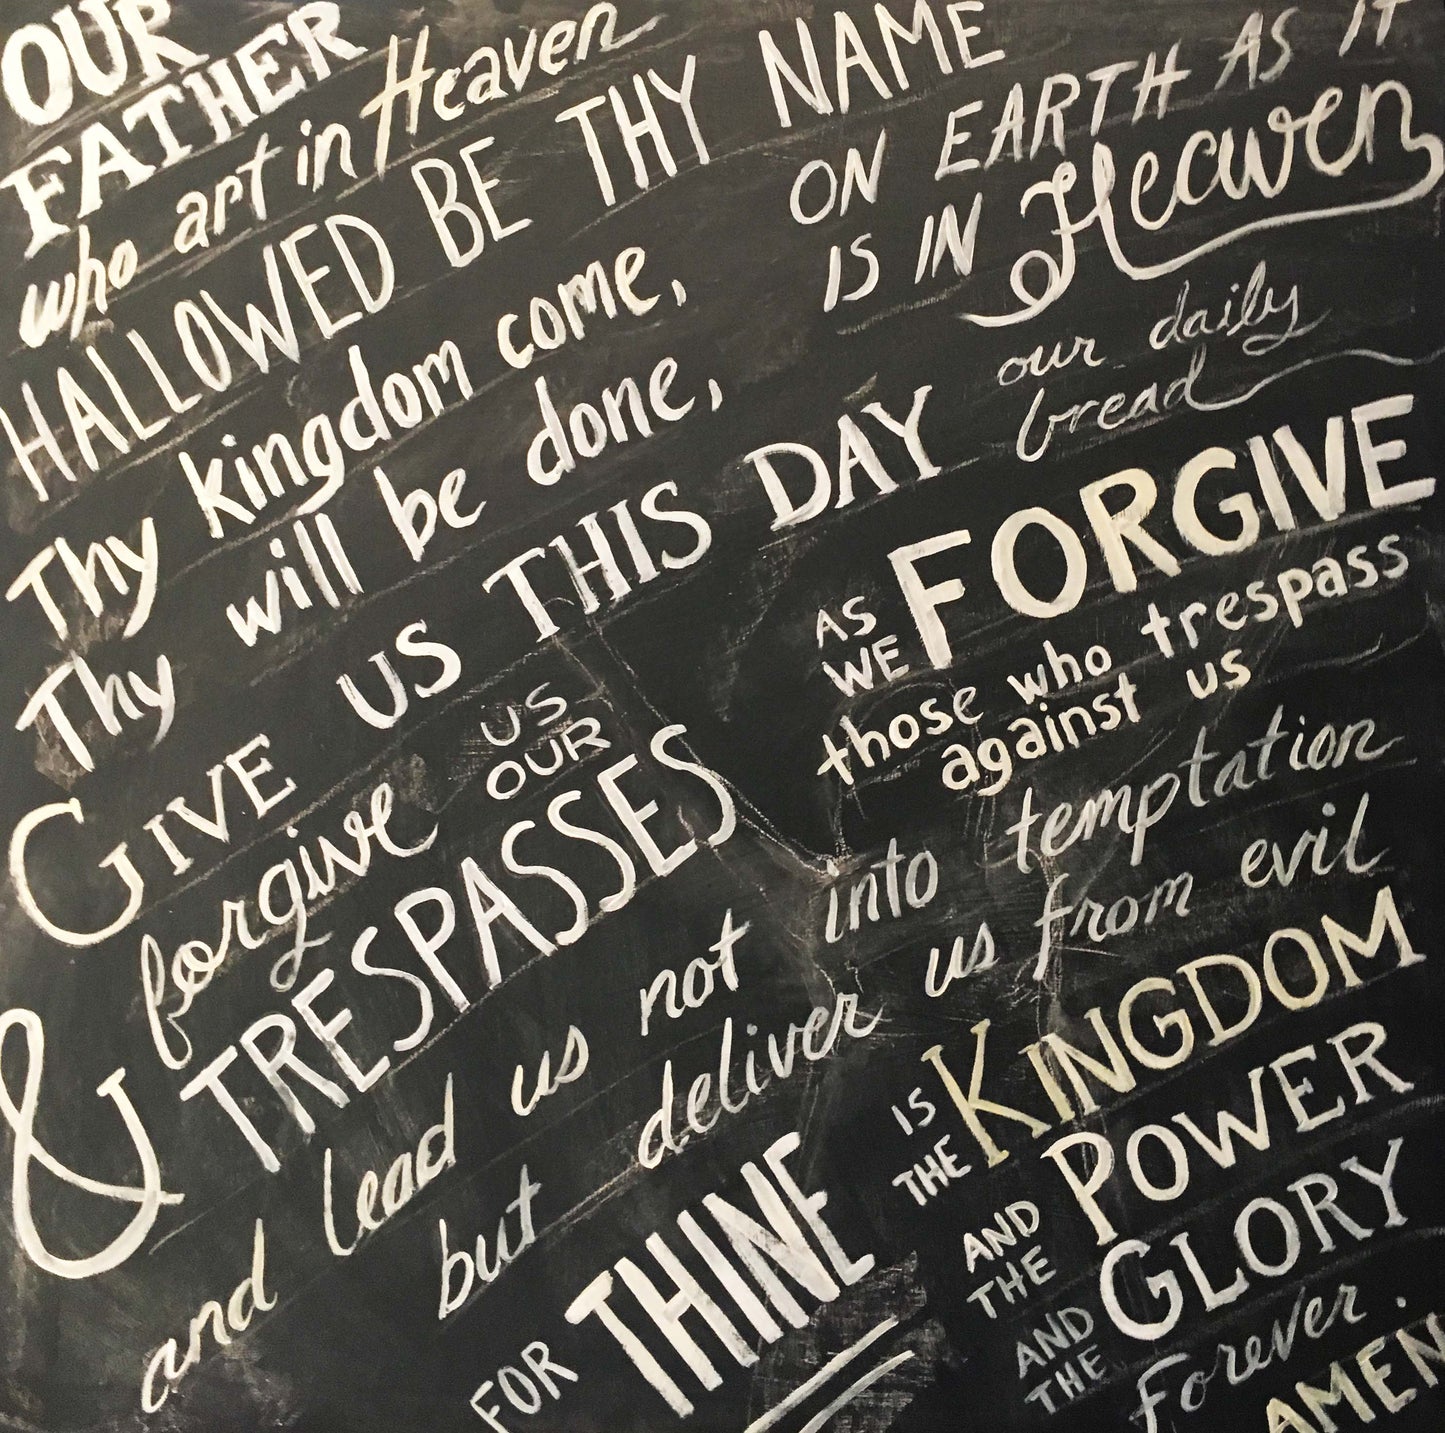 OUR
FATHER
who art in Heaven
HALLOWED BE THY NAME
Thy kingdom come,
Thy will be done,
ON EARTH AS IT
IS IN Heaven
GIVE US THIS DAY
our daily
bread
&
forgive
US
OUR
TRESPASSES
AS
WE
FORGIVE
those who trespass
against us
and lead us not into temptation
but deliver us from evil
FOR THINE
IS
THE
KINGDOM
AND
THE
POWER
AND
THE
GLORY
Forever.
AMEN